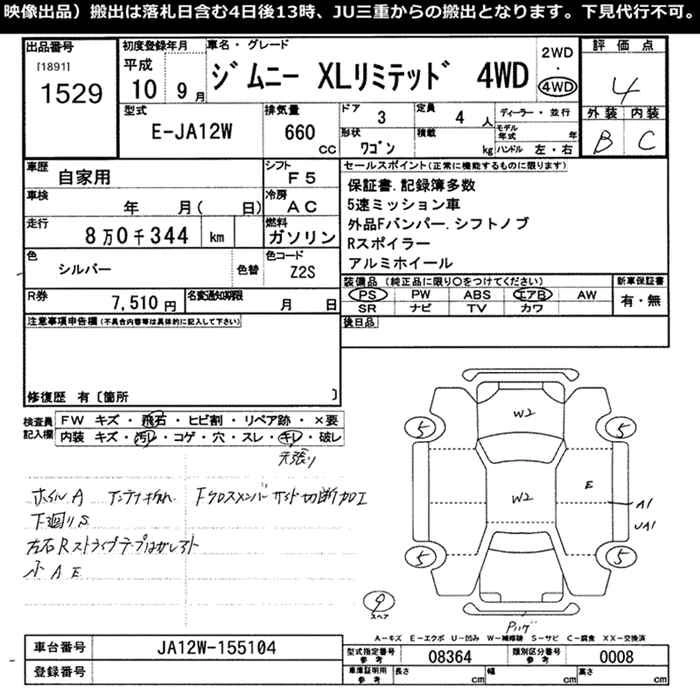 映像出品）搬出は落札日含む4日後13時、JU三重からの搬出となります。下見代行不可。
出品番号
[1891]
1529
初度登録年月
平成
10 9月
車名・グレード
ジムニー XLリミテッド 4WD
2WD
・
4WD
評価点
4
外装 内装
B C
型式
E-JA12W
排気量
660 cc
ドア
3
定員
4 人
形状
ワゴン
積載
kg
ディーラー・並行
モデル年式 年
ハンドル 左・右
車歴
自家用
シフト
F5
車検
年 月( 日)
冷房
AC
走行
8万0千344 km
燃料
ガソリン
色
シルバー
色替
色コード
Z2S
R券
7,510円
名変通知期限
月 日
セールスポイント(正常に機能するものに限ります)
保証書.記録簿多数
5速ミッション車
外品Fバンパー.シフトノブ
Rスポイラー
アルミホイール
装備品(純正品に限り○をつけてください)
PS PW ABS エアB AW
SR ナビ TV カワ
新車保証書
有・無
後日品
注意事項申告欄(不具合内容等は具体的に記入して下さい)
修復歴 有〔箇所 〕
検査員記入欄
FW キズ・飛石・ヒビ割・リペア跡・×要
内装 キズ・汚レ・コゲ・穴・スレ・キレ・破レ
天張り
ホイルA アンテナ折れ Fクロスメンバー サイド切断加工
下廻りS
左右Rストライプテープはがしアト
小A E
W2
W2
E
A1
UA1
5
5
5
5
9
スペア
A—キズ E—エクボ U—凹み W—補修跡 S—サビ C—腐食 XX—交換済
車台番号
JA12W-155104
登録番号
型式指定番号
参考
08364
類別区分番号
参考
0008
車庫証明用
参考
長さ cm
幅 cm
高さ cm